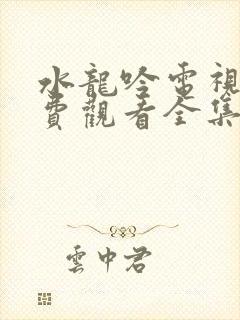 水龍吟電視
費觀看全集
雲中君